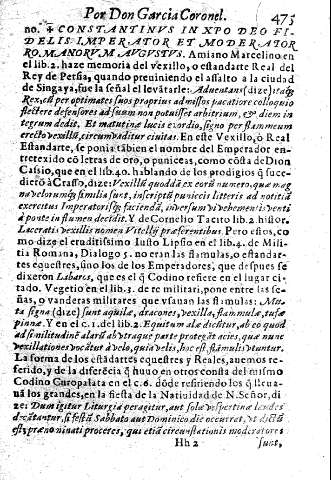 Por Don Garcia Coronel. 475
no. ✠ CONSTANTINVS IN XPO DEO FI-
DELIS IMPERATOR ET MODERATOR
ROMANORVM AVGVSTVS. Amiano Marcelino en
el lib. 2. haze memoria del vexilo, o estandarte Real del
Rey de Persia, quando preuiniendo el assalto a la ciudad
de Singaya, fue la señal el leuãtarle: Aduentans (dize) itaq;
Rex, est per optimates suos proprius admissos pacatiore colloquio
flectere defensores ad suum non potuisset arbitrium, & diem in-
tegrum dedit. Et matutinæ lucis exordio, signo per flammeum
erecto vexillũ, circumuaditur ciuitas. En este Vexillo, ò Real
Estandarte, se ponia tãbien el nombre del Emperador en-
tretexido cõ letras de oro, o puniceas, como cõsta de Dion
Cassio, que en el lib. 40. hablando de los prodigios q̃ suce-
dierõ à Crasso, dize: Vexillũ quoddã ex eorũ numero, quæ mag
na velorumq; similia sunt, inscriptũ puniceis litteris ad notitiã
exercitus Imperatorisq; faciendã, inuersum vi vehementis vẽti
à ponte in flumen decidit. Y de Cornelio Tacito lib. 2. histor.
Lucerati vexillis nomen Vitellij præferentibus. Pero estos, co-
mo dize el eruditissimo Iusto Lipsio en el lib. 4. de Mili-
tia Romana, Dialogo 5. no eran las flamulas, o estandar-
tes equestres, sino los de los Emperadores, que despues se
dixeron Labaros, que es el q̃ Codino refiere en el lugar ci-
tado. Vegetio en el lib. 3. de re militari, pone entre las se-
ñas, o vanderas militares que vsauan las flamulas: Mu-
ta signa (dize) sunt aquilæ, dracones, vexilla, flammulæ, tufæ
pinnæ. Y en el c. 1. del lib. 2. Equitum alæ dicitur, ab eo quod
ad similitudinẽ alarũ ab vtraque parte protegãt acies, quæ nunc
vexillationes vocãtur à velo, quia velis, hoc est flãmulis vtuntur.
La forma de los estãdartes equestres y Reales, auemos re-
ferido, y de la diferẽcia q̃ huuo en otros consta del mismo
Codino Curopalata en el c. 6. dõde refiriendo los q̃ lleua-
uã los grandes, en la fiesta de la Natiuidad de N. Señor, di
ze: Dum igitur Liturgia peragitur, aut solæ vespertinæ laudes
dicãtur, si festũ Sabbato aut Dominico die occurrat, vt dictũ
est, præeno ninati proceres, qui etiã circunstantis moderatores
Hh 2 sunt,